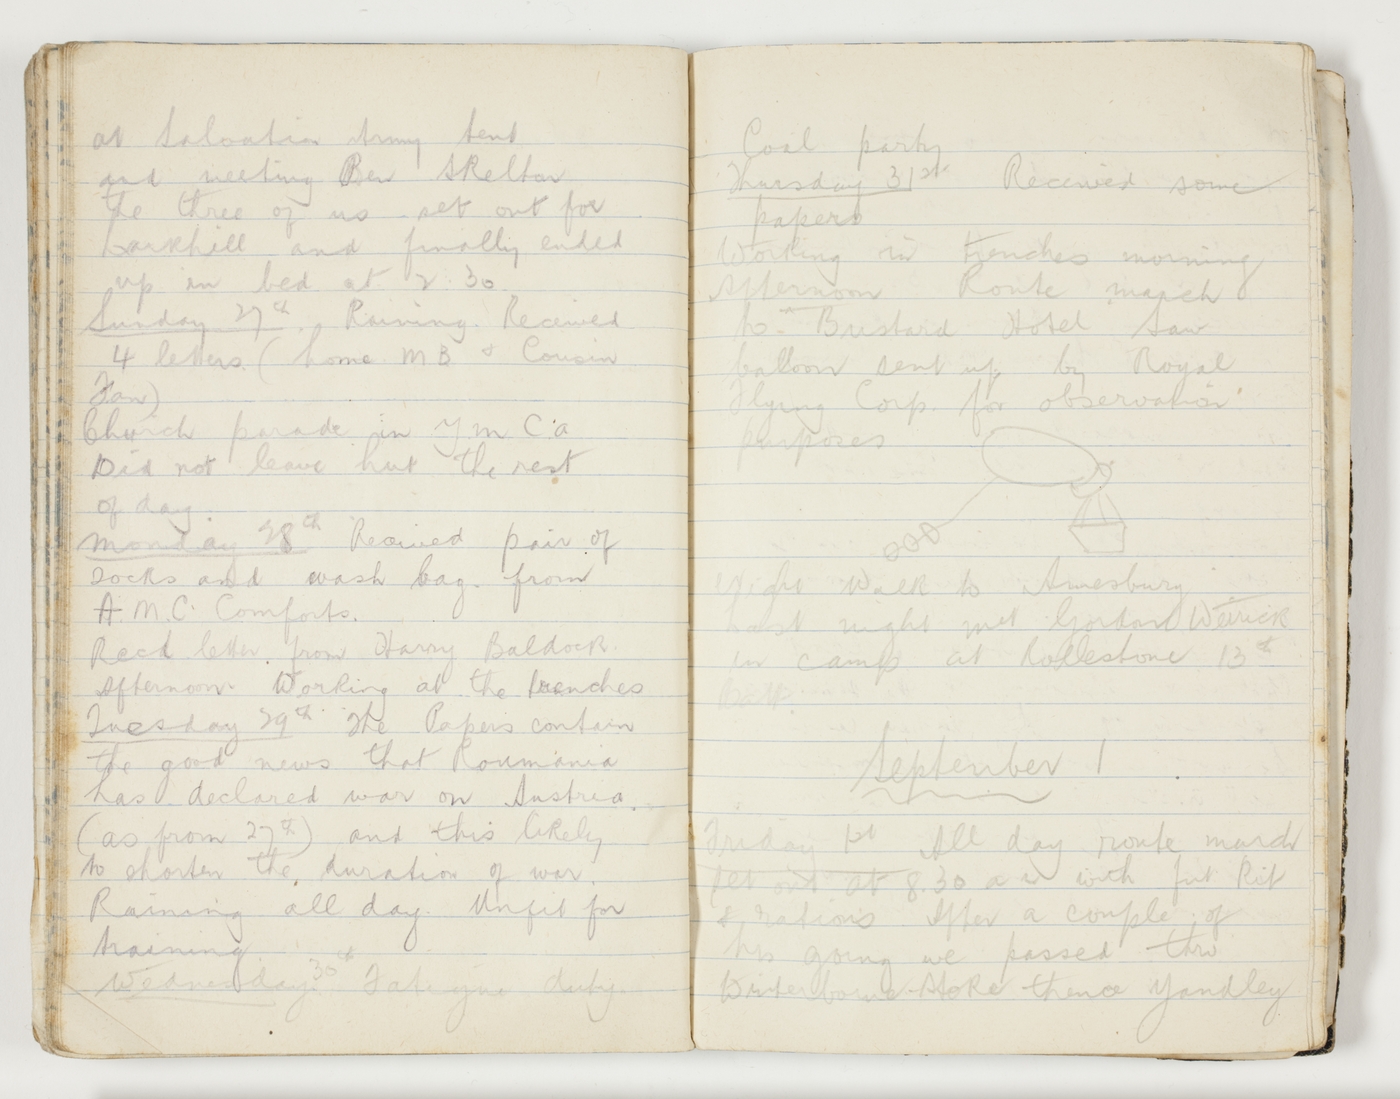 at Salvation Army tent
and meeting Ben Skelton
the three of us set out for
Larkhill and finally ended
up in bed at 2.30
Sunday 27th. Raining. Received
4 letters (home M B & Cousin
Fan)
Church parade in Y M C A
Did not leave hut the rest
of day
Monday 28th Received pair of
socks and wash bag from
A.M.C. Comforts.
Recd letter from Harry Baldock.
Afternoon Working at the trenches
Tuesday 29th The Papers contain
the good news that Roumania
has declared war on Austria.
(as from 27th) and this likely
to shorten the duration of war.
Raining all day. Unfit for
training
Wednesday 30th Fatigue duty
Coal party
Thursday 31st Received some
papers
Working in trenches morning
Afternoon Route march
to Bustard Hotel Saw
balloon sent up by Royal
Flying Corp. for observation
purposes
Night Walk to Amesbury
Last night met Gordon
in camp at Rollestone 13th
Batt.
September 1
Friday 1st All day route march
set out at 8.30 a m with full Kit
& rations After a couple of
hrs going we passed thro
Winterborne Stoke thence Yandley